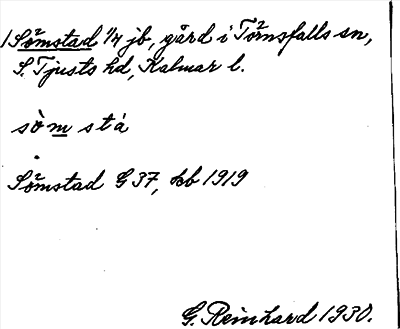 1 Sömstad 1/4 jb, gård i Törnsfalls sn,
S. Tjusts hd, Kalmar l.
sòm stá
Sömstad G 37, kb 1919
G. Reinhard 1930.